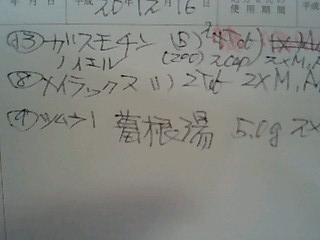 年 月 日 平成 20年12月16日 使用期間 平成
⑬ ガスモチン (5) 2Tab
ノイエル (200) 2cap 2xM.A
⑧ メイラックス (1) 2Tab 2xM.A.
ツムラ1 葛根湯 5.0g 2x